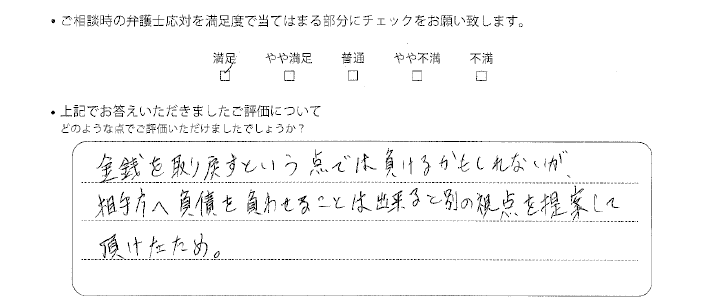 ・ご相談時の弁護士応対を満足度で当てはまる部分にチェックをお願い致します。
満足 やや満足 普通 やや不満 不満
・上記でお答えいただきましたご評価について
どのような点でご評価いただけましたでしょうか？
金銭を取り戻すという点では負けるかもしれないが、
相手方へ負債を負わせることは出来ると別の視点を提案して
頂けたため。